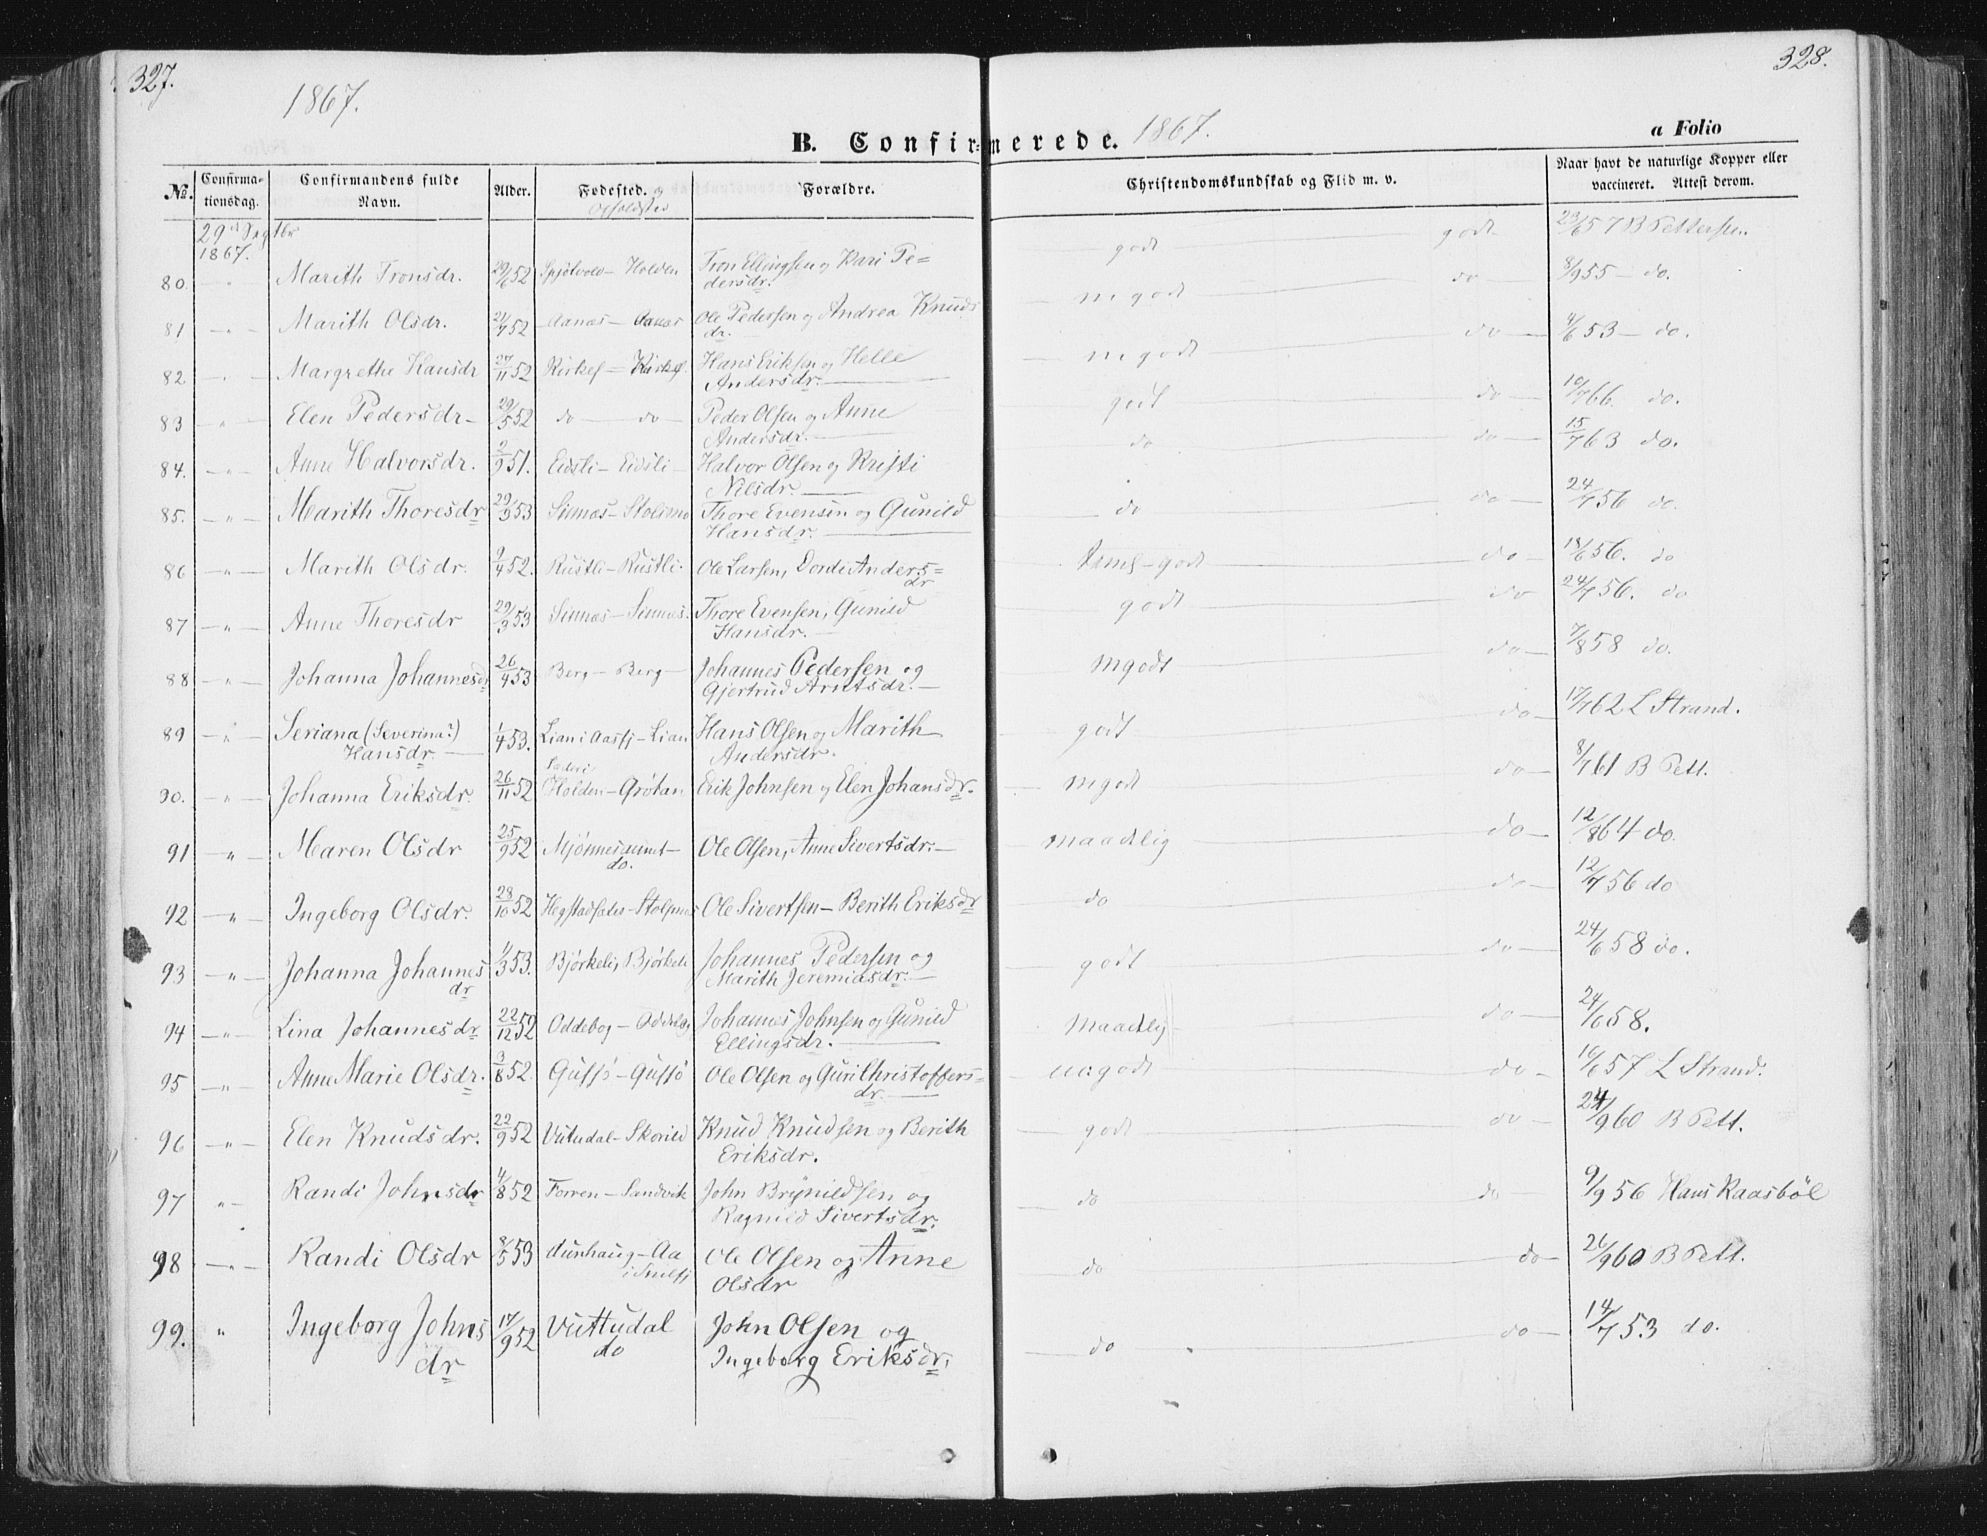 327.
328.
1867.
B. Confirmerede. 1867.
a Folio
No. Confirmationsdag. Confirmandens fulde Navn. Alder. Fødested. og Opholdssted Forældre. Christendomskundskab og Flid m. v. Naar havt de naturlige Kopper eller vaccineret. Attest derom.
29de Septbr 1867.
80. " Marith Tronsdr. 29/6 52 Spjötvold - Holden Tron Ellingsen og Kari Pedersdr. godt godt 23/6 57 B Pettersen.
81 " Marith Olsdr. 21/7 52 Aanæs - Aanæs Ole Pedersen og Andrea Knudsdr. mgodt do 8/9 55 - do.
82 " Margrethe Hansdr 27/11 52 Kirkes - Kirkes Hans Eriksen og Helle Andersdr. mgodt do 4/6 53 - do.
83 " Elen Pedersdr 29/5 52 do do Peder Olsen og Anne Andersdr. godt do 10/7 66 do.
84. " Anne Halvorsdr. 2/9 51. Eidsli - Eidsli Halvor Olsen og Kristi Nilsdr. do do 15/7 63 do.
85. " Marith Thoresdr 29/3 53 Sinnæs - Thore Evensen og Gunild Hansdr. do do 24/7 56 do.
86 " Marith Olsdr. 9/4 52. Rustli - Rustli. Ole Larsen, Dordi Andersdr godt do 18/6 56. do
87 " Anne Thoresdr 29/3 53 Sinnæs - Sinnæs. Thore Evensen, Gunild Hansdr. godt do 24/7 56. do
88 " Johanna Johannesdr 26/4 53 Berg - Berg Johannes Pedersen og Gjertrud Arntsdr. mgodt do 7/8 58 do.
89 " Seriana (Severina?) Hansdr. 1/4 53. Lian i Aasfj - Lian Hans Olsen og Marith Andersdr. godt do 17/7 62 L Strand.
90. " Johanna Eriksdr. 26/11 52 Holden - Grötan Erik Johnsen og Elen Johansdr. mgodt do 8/7 61 B Pett.
91 " Maren Olsdr 25/9 52 Mjönnesaunet - do. Ole Olsen, Anne Sivertsdr. maadelig do 12/8 64 do.
92 " Ingeborg Olsdr. 28/10 52 Hegstadsæter - Stolpnes Ole Sivertsen - Berith Eriksdr do do 12/7 56 do
93 " Johanna Johannesdr 1/3 53. Björkeli, Björkeli Johannes Pedersen og Marith Jeremiasdr. godt do 24/6 58 do.
94 " Lina Johannesdr 22/12 52 Oddebog - Oddebog Johannes Johnsen og Gunild Ellingsdr. maadelig do 24/6 58.
95 " Anne Marie Olsdr. 3/8 52. Gusjö - Gusjö Ole Olsen og Guri Christoffersdr. do 10/6 57 L Strand.
96 " Elen Knudsdr. 22/9 52 Vutudal - Skorild Knud Knudsen og Berith Eriksdr. godt do 24/9 60 B Pett.
97 " Randi Johnsdr 4/8 52 Forren - Sandvik John Brynildsen og Ragnild Sivertsdr. do do 9/9 56 Hans Raasböl
98 " Randi Olsdr 8/5 53 - Aa Ole Olsen og Anne Olsdr do do 26/9 60 B Pett.
99. " Ingeborg Johnsdr 17/9 52 Vuttudal do John Olsen og Ingeborg Eriksdr. do do 14/7 53 do.